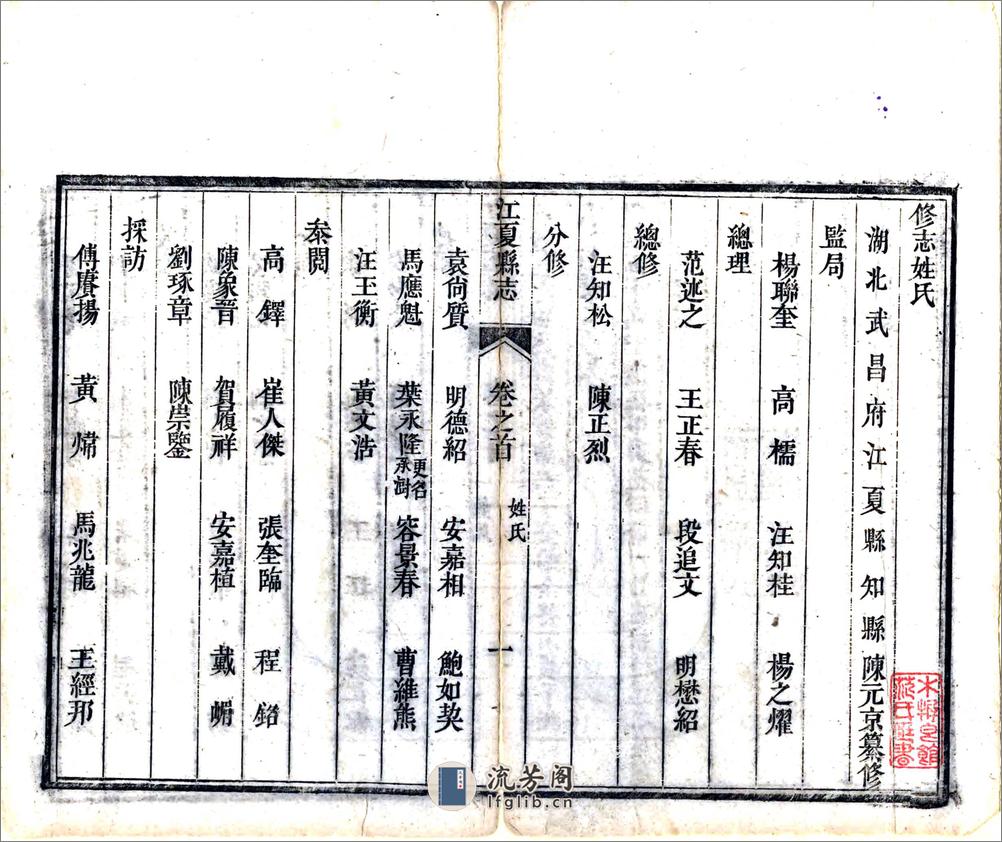 修志姓氏
湖北武昌府江夏縣知縣陳元京纂修
監局
楊聯奎 高檽 汪知桂 楊之燿
總理
范遮之 王正春 段追文 明懋紹
總修
汪知松 陳正烈
分修
江夏縣志 卷之首 姓氏 一
袁尙質 明德紹 安嘉相 鮑如契
馬應魁 葉永隆更名承澍 容景春 曹濰熊
汪玉衡 黃文浩
叅閱
高鐸 崔人傑 張奎臨 程
陳象晉 賀履祥 安嘉植 戴
劉琢章 陳崇鑒
採訪
傅賡揚 黃 馬兆龍 王經邦
流芳阁
lfglib.cn